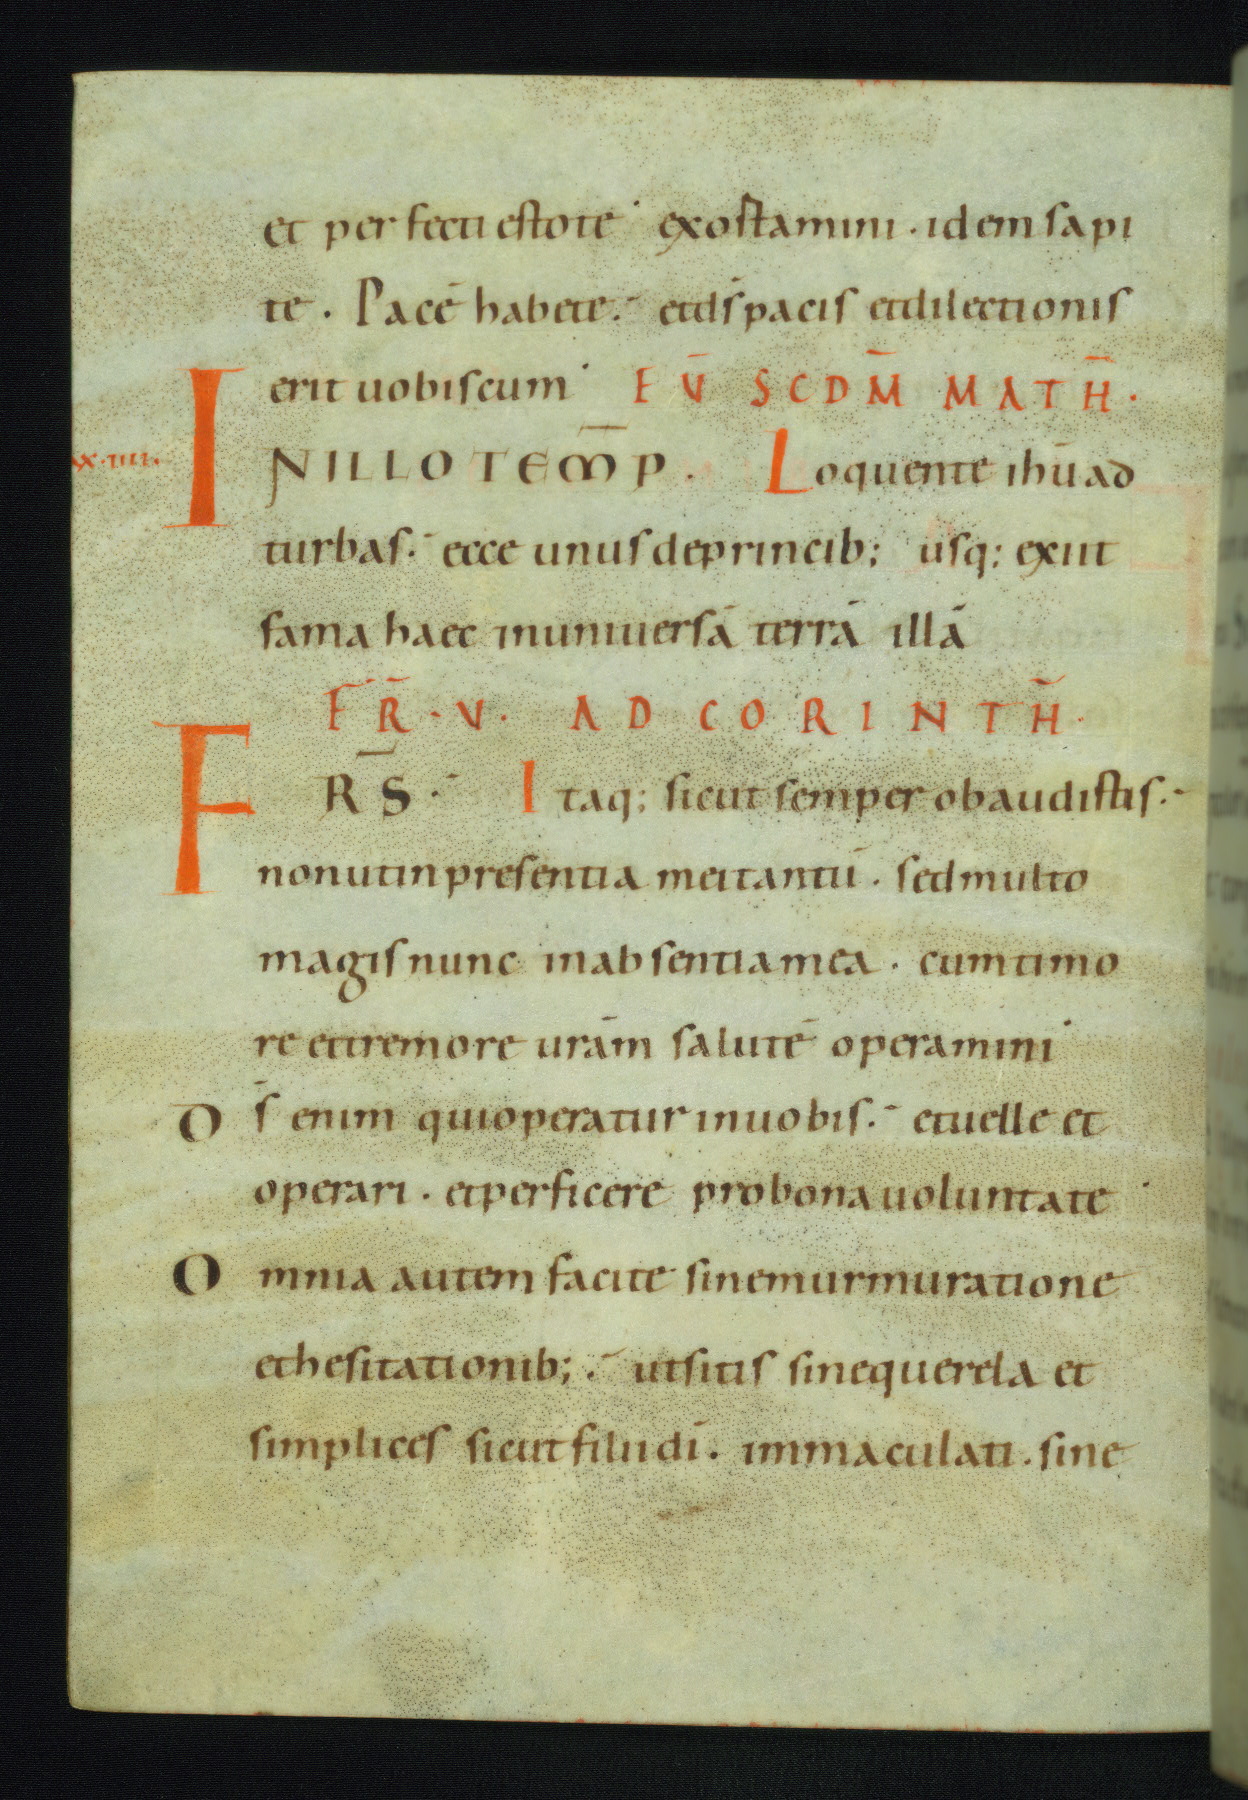 et perfecti estote · exostamini · idem sapi
te · Pacē habete · et ds̄ pacis et dilectionis
erit uobiscum · EŪ SCDM̄ MATH̄ ·
xx·IIII· INILLO TEM̄P · Loquente ihū ad
turbas · ecce unus de princib; usq; exiit
fama haec in uniuersā terrā illā
FR̄ · V · AD CORINTH̄ ·
FR̄S · Itaq; sicut semper obaudistis ·
non ut in presentia mei tantū · sed multo
magis nunc in absentia mea · cum timo
re et tremore urām salutē operamini ·
Ds̄ enim qui operatur in uobis · et uelle et
operari · et perficere pro bona uoluntate ·
Omnia autem facite sine murmuratione
et hesitationib; · ut sitis sine querela et
simplices sicut filii dī · immaculati · sine